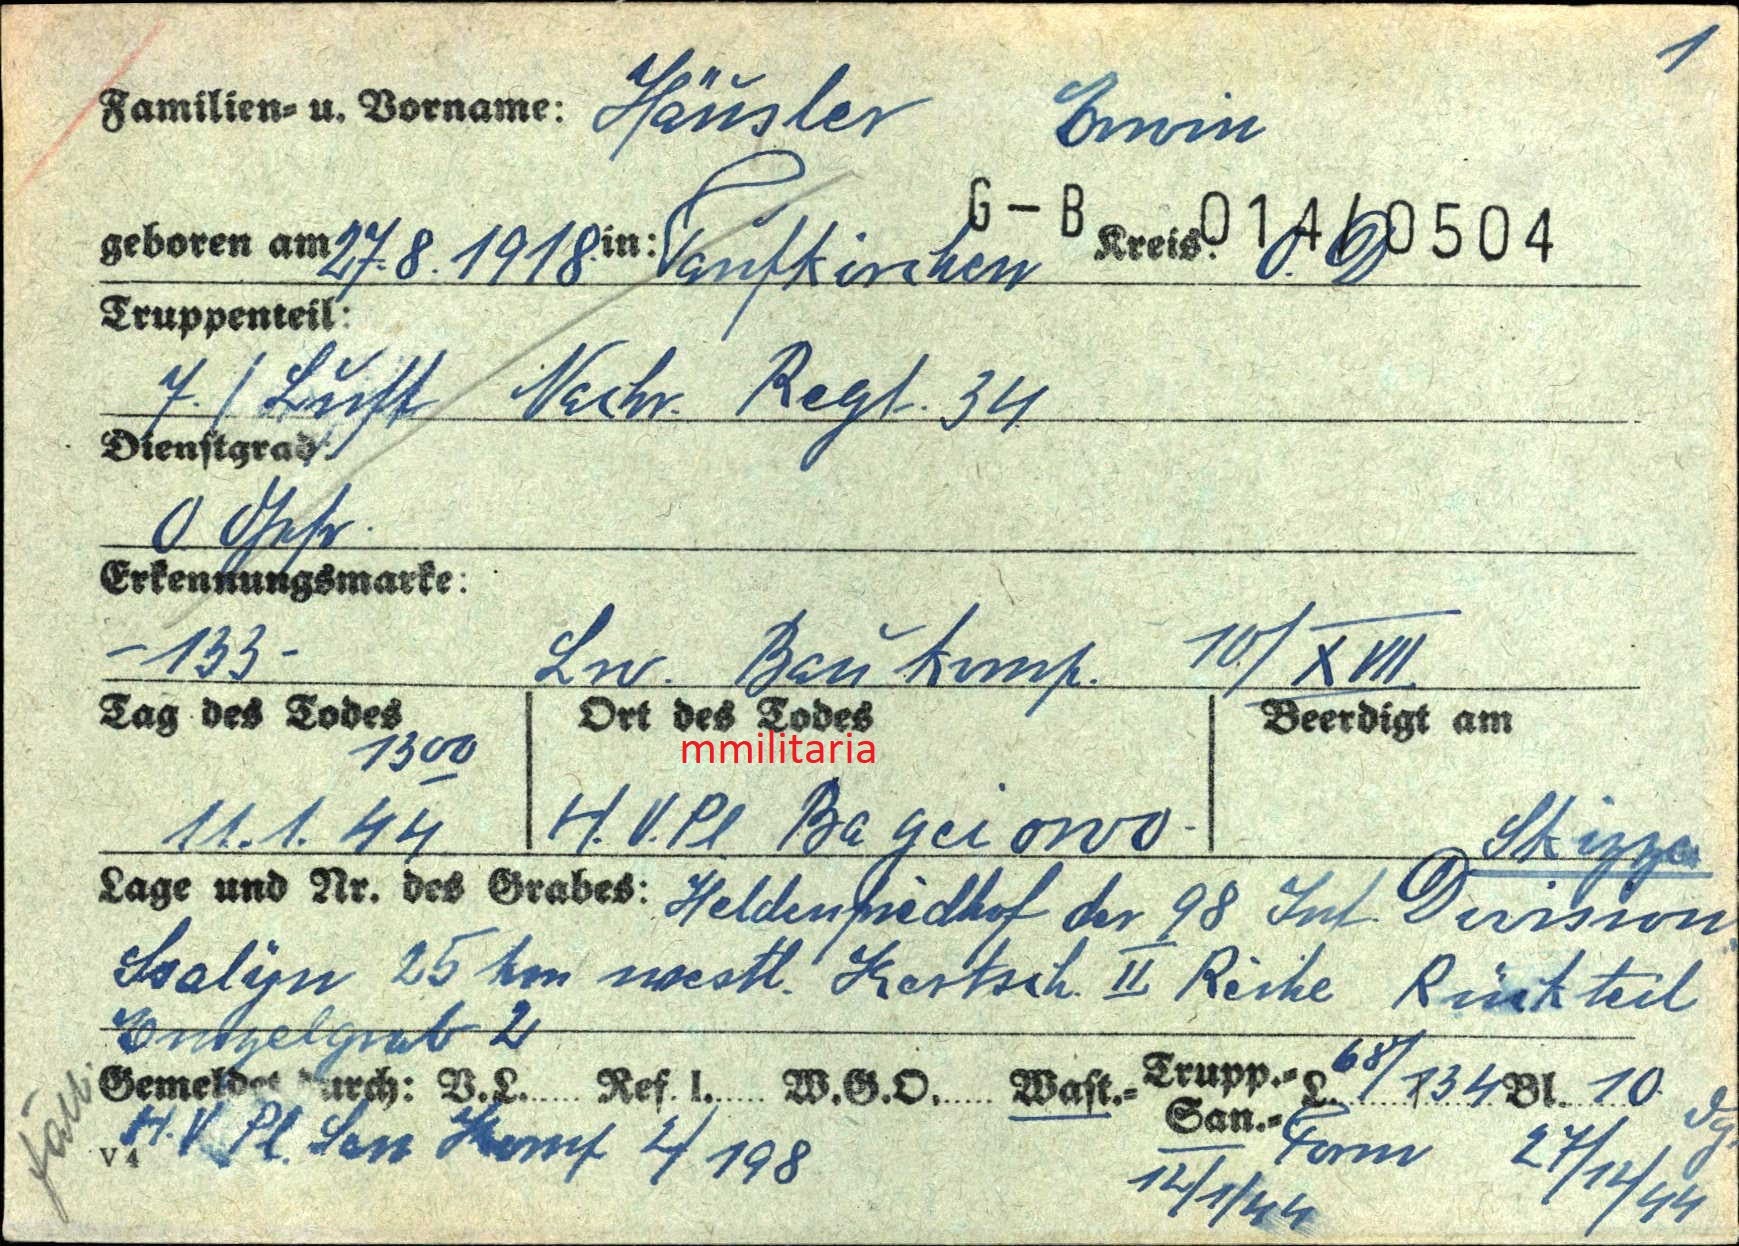 1
Familien- u. Vorname: Häusler Erwin
G-B 014/0504
geboren am 27.8.1918 in: Taufkirchen Kreis: O.D
Truppenteil:
7./ Luft Nachr. Regt. 34
Dienstgrad:
O Gefr.
Erkennungsmarke:
-133- Lw. Bau komp. 10/XVII
Tag des Todes Ort des Todes Beerdigt am
1300 mmilitaria
11.1.44 H.V.Pl Bageiowo- Skizze
Lage und Nr. des Grabes: Heldenfriedhof der 98 Inf. Division
Ssalyn 25 km westl. Kertsch. II Reihe Rückteil
Einzelgrab 2
Gemeldet durch: V.L...... Ref. I...... W.G.O...... Wast.- Trupp.- San.- L. 68/134 Bl. 10
H.V. Pl. San Komp 2/198 Form 27/12/44
V 4 12/1/44